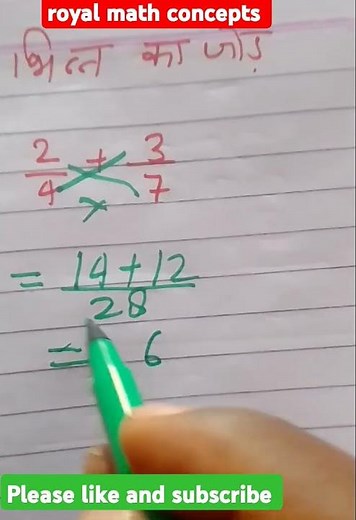 royal math concepts
भिन्न का जोड़
2/4 + 3/7
×
= 14+12/28
= 6
Please like and subscribe